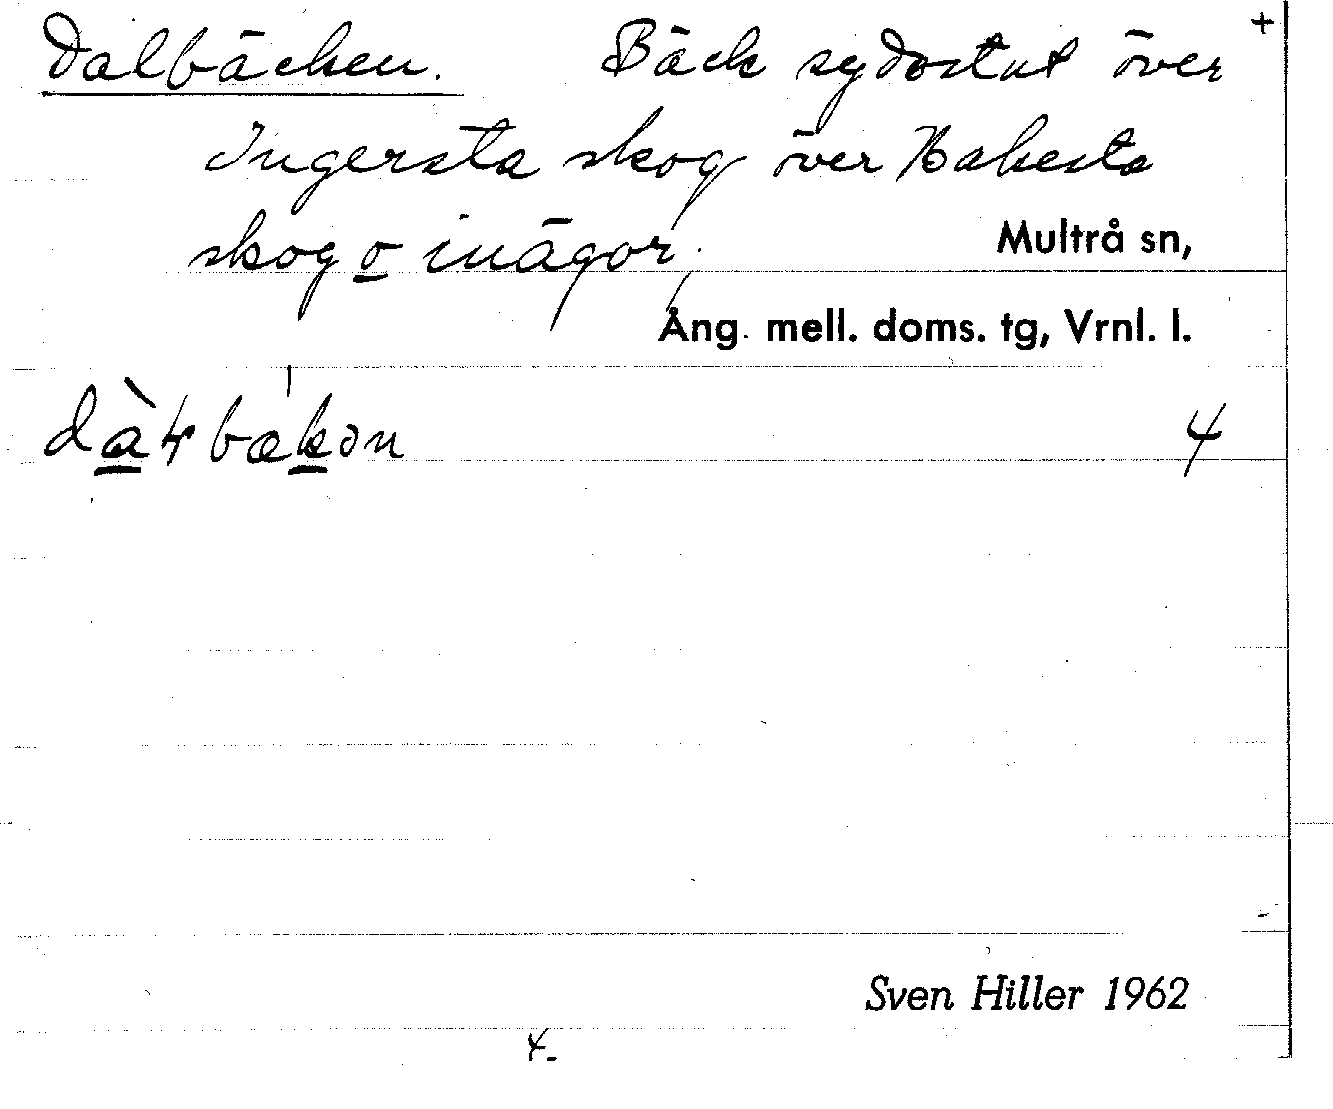 Dalbäcken. Bäck sydostut över +
Ingersta skog över
skog o inägor.
Multrå sn,
Ång. mell. doms. tg, Vrnl. l.
4
Sven Hiller 1962